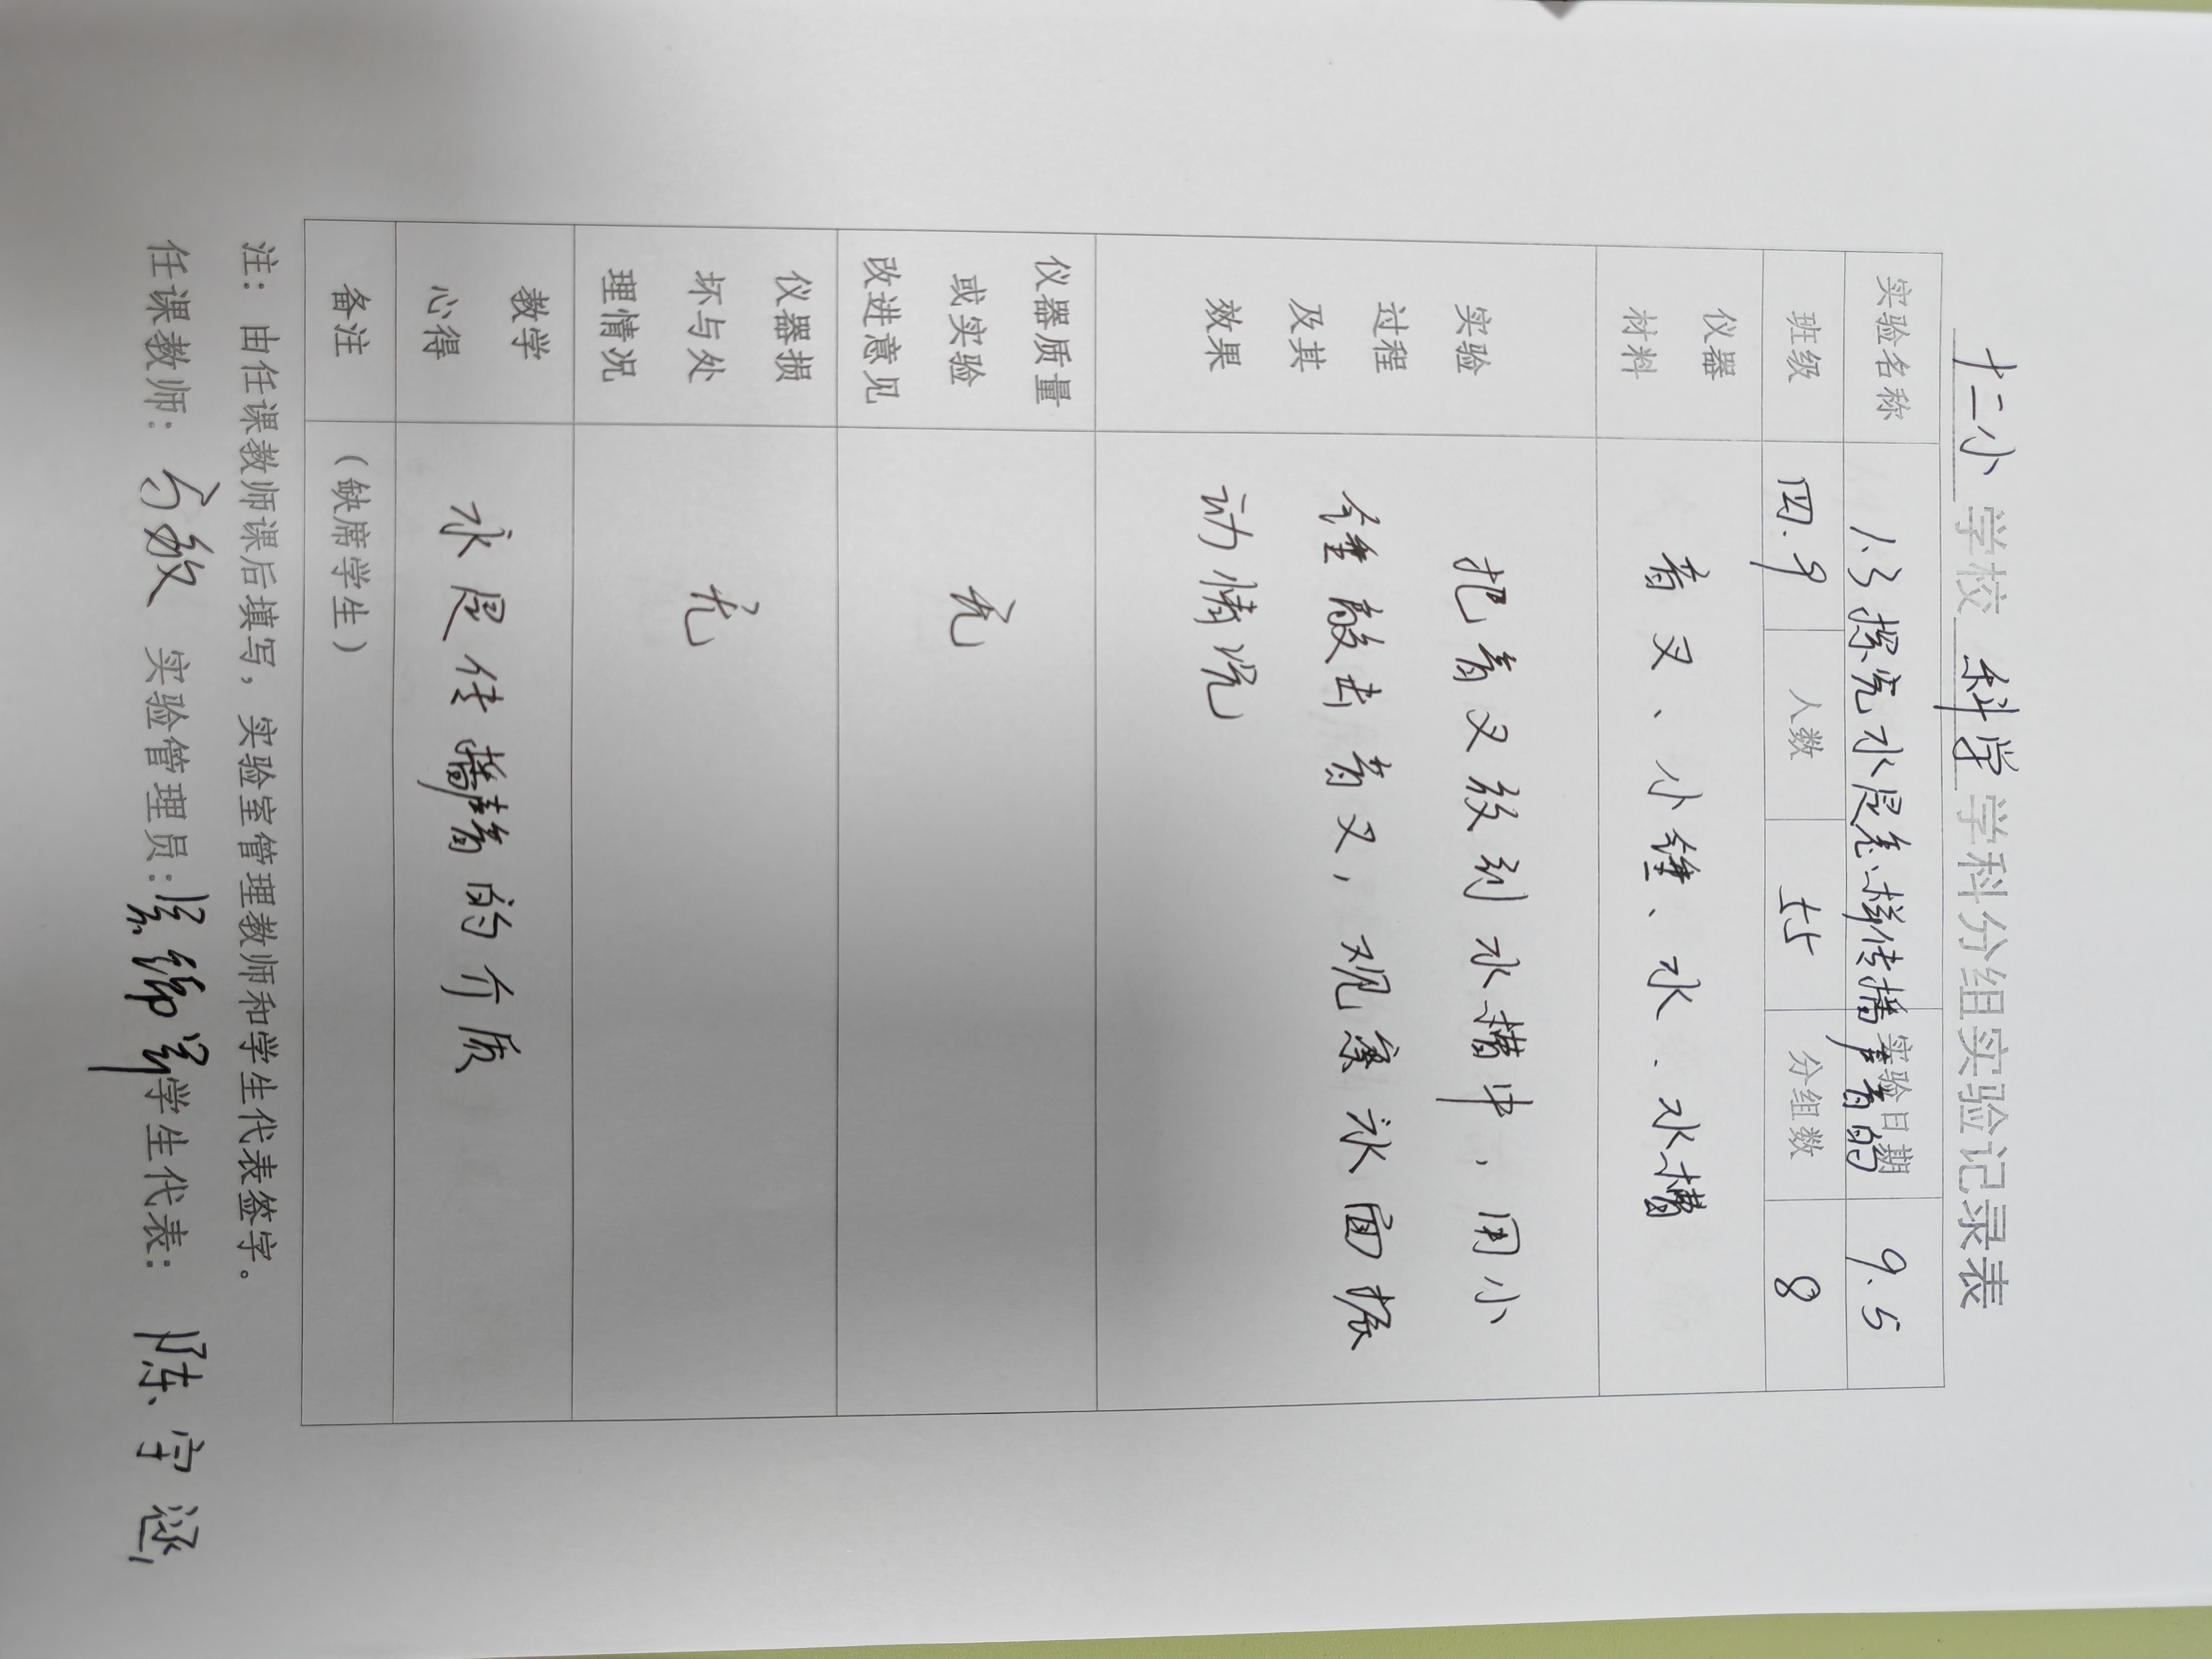 十二小 学校 科学 学科分组实验记录表
实验名称 1.3探究水是怎样传播声音的 实验日期 9.5
班级 四.9 人数 55 分组数 8
仪器
材料
音叉、小锤、水、水槽
实验
过程
及其
效果
把音叉放到水槽中，用小
锤敲击音叉，观察水面振
动情况
仪器质量
或实验
改进意见
无
仪器损
坏与处
理情况
无
教学
心得
水是传播声音的介质
备注 （缺席学生）
注：由任课教师课后填写，实验室管理教师和学生代表签字。
任课教师： 实验管理员： 学生代表：陈宇涵